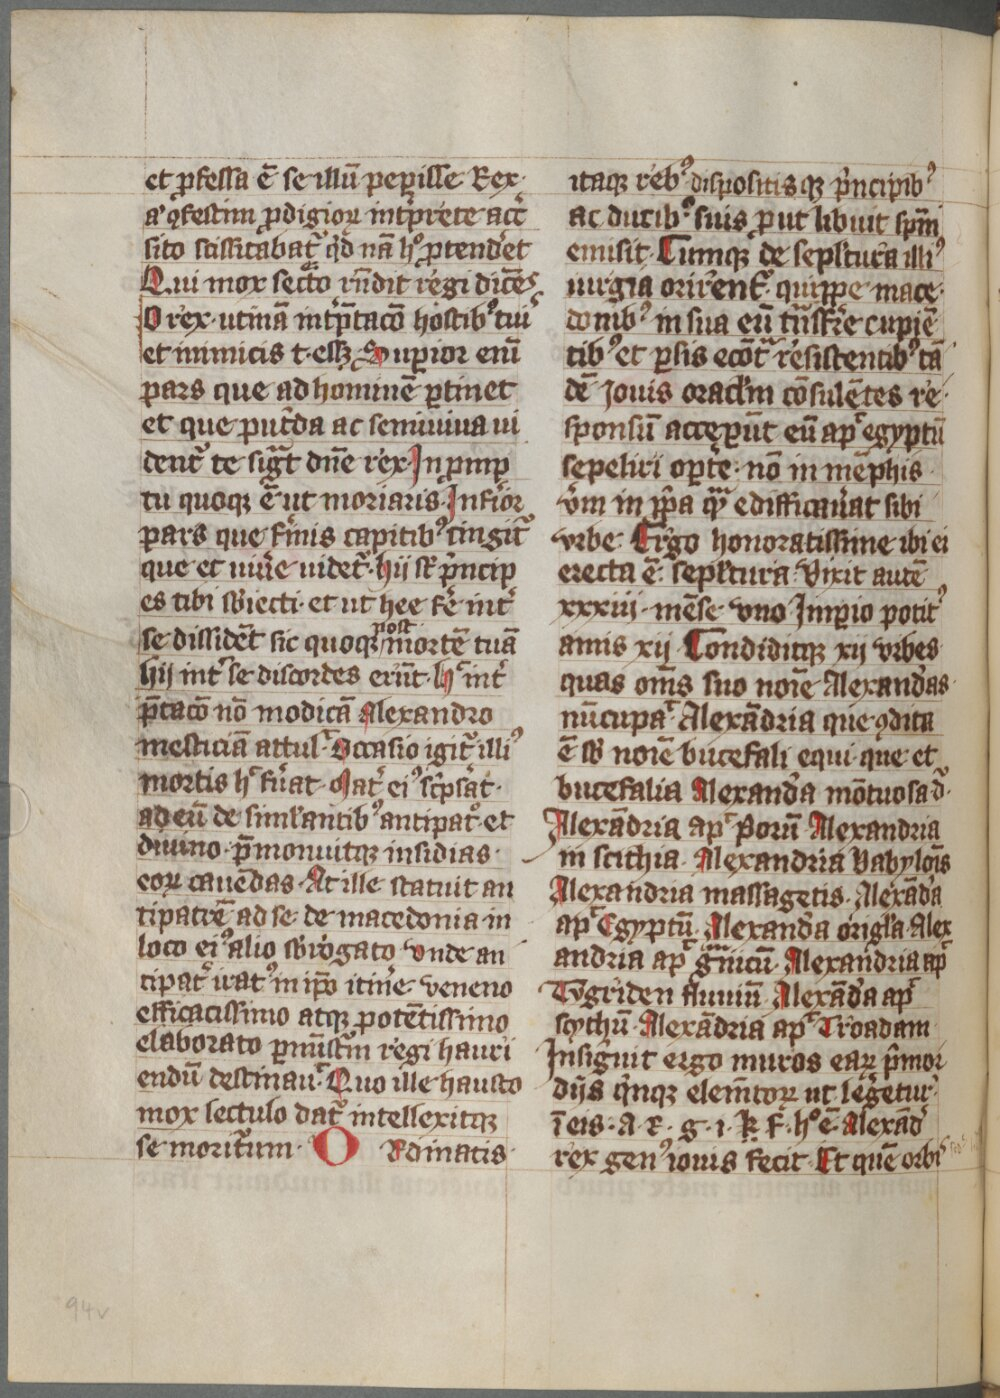 et ꝓfessa ē se illū peꝑisse Rex·
a ꝯfestim ꝓdigioꝝ intᵽrete acc̄
sito scissitabat᷑ qͥd nā hͦ ꝓtendˀet
Qui mox secto rn̄dit regi dicēs
O rex· utinā intᵽtacō hostibꝰ tuiˀ
et inimicis t· eēt Supior enī
pars que ad hominē ꝑtinet
et que putˀda ac semiuiua ui
dent᷑ te sigᷓt dn̄e rex In ꝓmp
tu quoqꝫ ē ut moriaris· Infˀior
pars que fˀinis capitibꝰ cingit᷑
que et uiuˀe uidet᷑· hij st̄ pͥncip
es tibi sb̄iecti· et ut hee fˀe intˀ
se dissidēt sic quoqꝫ post mortē tuā
hij intˀ se discordes erūt· hˀ intˀ
p̄tacō nō modicā Alexandro
mesticiā attulˀ Occasio igit᷑ illiꝰ
mortis hˀ fuˀat· Matˀ eiꝰ scͥpsˀat·
ad eū de siml̓antibꝰ antipatͦ· et
diuino· p̄monuitqꝫ insidias·
eoꝝ cauēdas· At ille statuit an
tipatrē ad se· de macedonia in
loco eiꝰ alio sb̄rogato Vnde an
tipatˀ iratꝰ in ip̄o itinˀe veneno
efficacissimo atqꝫ potētissimo
elaborato ꝑ mīstm̄ regi hauri
endū destinauˀ Quo ille hausto
mox lectulo dat᷑ intellexitqꝫ
se moritˀum· O Rdinatis·
itaqꝫ rebꝰ dispositisqꝫ pͥncipibꝰ
ac ducibꝰ suis ꝓut libuit sp̄m
emisit· Cumqꝫ de sepl̓tura illiꝰ
iurgia orirent᷑· quippe mace·
donibꝰ in sua eū tn̄sfˀre cupiē
tibꝰ et ꝑsis ecōtᷓ resistentibꝰ tā
dē Jouis oracl̓m cōsulētes re·
sponsū acceꝑūt eū apˀ egyptū
sepeliri opͥte· nō in mēphis·
vˀm in ip̄a qᷓm edifficauˀat sibi
vrbe· Ergo honoratissime ibi ei
erecta ē· sepl̓tura· Vixit autē
xxxiii· mēse vno Impͥio potitꝰ
annis xij Condiditqꝫ xij vrbes
quas om̄s suo noīe Alexandˀas·
nūcupaˀ Alexādria que ꝯdita
ē sb̄ noīe bucefali equi· que et
bucefalia Alexandˀa mōtuosa dˀ·
Alexādria apˀ Porū· Alexandria
in scithia· Alexandria Babylōis
Alexandria massagetis· Alexādˀa
apˀ Egyptū· Alexandˀa origl̓a· Alex
andria apˀ gᷓnicū· Alexandria apˀ
Tygriden fluuiū· Alexādˀa apˀ
scythū· Alexādria apˀ Troadam·
Insignuit ergo muros eaꝝ pͥmor
dijs qͥnqꝫ elemˀtoꝝ ut legˀetur·
ī eis· A· E· g· i· k· f· hͦ ē Alexādˀ
rex genꝰ iouis fecit· Et quē orbi
94v